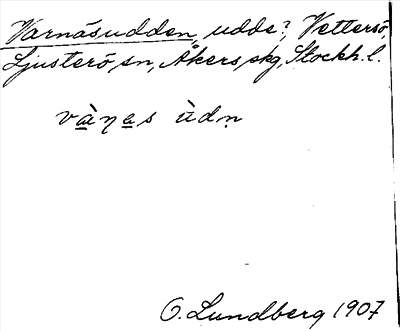 Varnäsudden, udde?, Vettersö,
Ljusterö, sn, Åkers skg, Stockh. l.
và̲ŋa̲s ùdṇ
O. Lundberg 1907